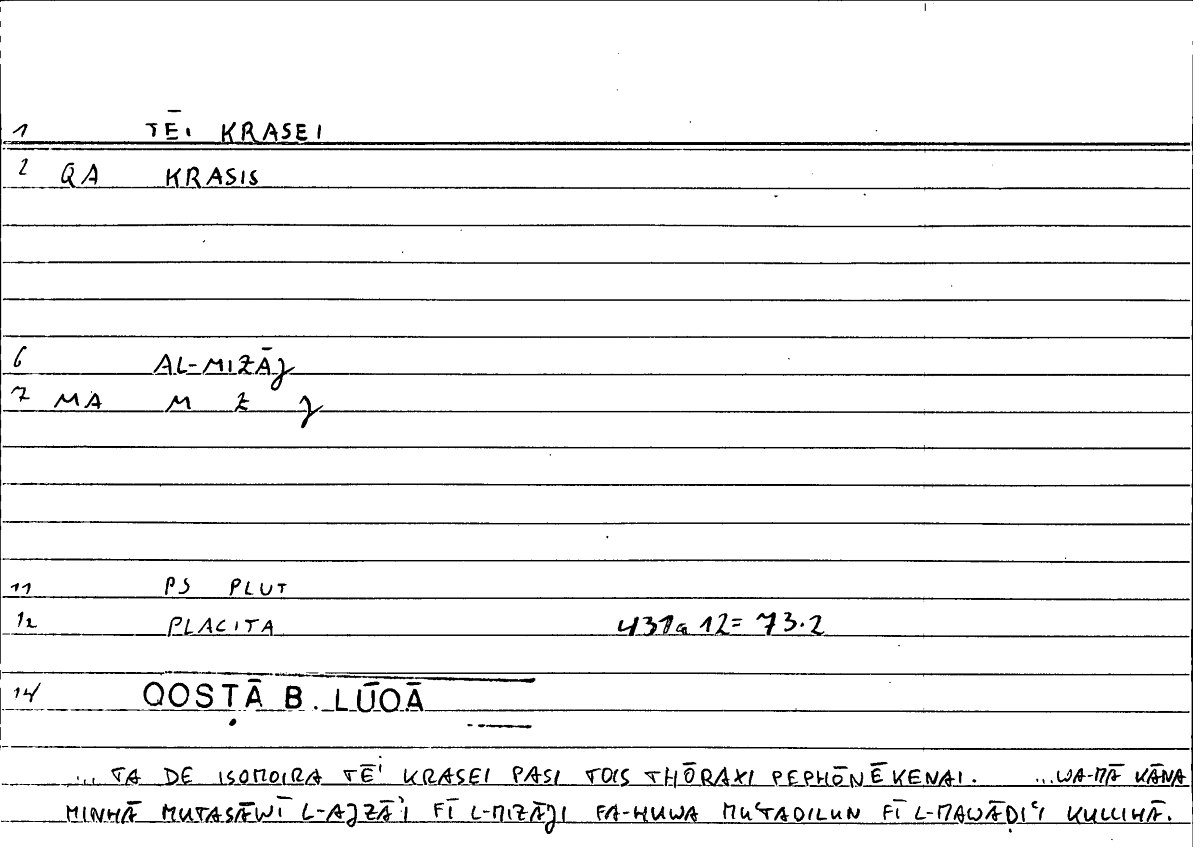 1 TĒI KRASEI
2 QA KRASIS
6 AL-MIZĀJ
7 MA M Z J
11 PS PLUT
12 PLACITA 431a 12= 73.2
14 QOSṬĀ B. LŪQĀ
... TA DE ISOMOIRA TĒI KRASEI PASI TOIS THŌRAXI PEPHŌNĒKENAI. ...WA-MĀ KĀNA
MINHĀ MUTASĀWĪ L-AJZĀʾI FĪ L-MIZĀJI FA-HUWA MUʿTADILUN FĪ L-MAWĀḌIʿI KULLIHĀ.